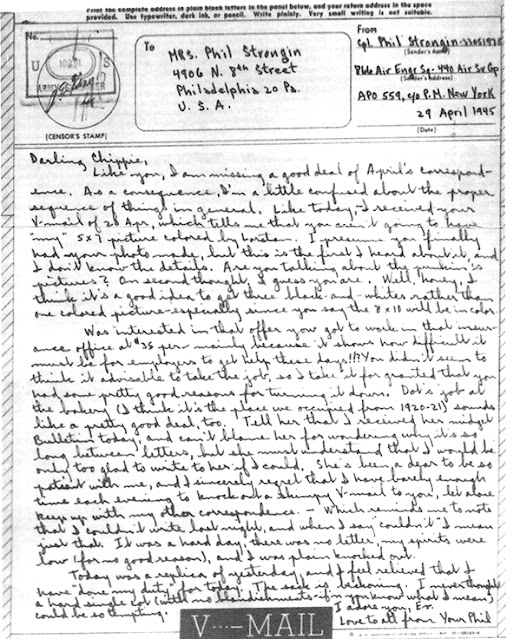 Print the complete address in plain block letters in the panel below, and your return address in the space
provided. Use typewriter, dark ink, or pencil. Write plainly. Very small writing is not suitable.
No.
(CENSOR'S STAMP)
To
Mrs. Phil Strongin
4906 N. 8th Street
Philadelphia 20 Pa.
U. S. A.
From
Cpl. Phil Strongin-
(Sender's name)
Engr Sq- 490 Air Sv Gp
(Sender's address)
APO 559, c/o P.M. New York
29 April 1945
(Date)
Darling Chippie,
Like you, I am missing a good deal of April's correspond-
ence. As a consequence, I'm a little confused about the proper
sequence of things in general. Like today, I received your
V-mail of 20 Apr, which tells me that you aren't going to have
"my" 5x7 picture colored by I presume you finally
had your photo made, but this is the first I heard about it, and
I don't know the details. Are you talking about the punkin's
pictures? On second thought, I guess you are. Well, honey, I
think it's a good idea to get three black-and-whites rather than
one colored picture-especially since you say the 8x10 will be in color
Was interested in that offer you got to work in that insur-
ance office at $35 per- mainly because it shows how difficult it
must be for employers to get help these days!!? You didn't seem to
think it advisable to take the job, so I take it for granted that you
had some pretty good reasons for turning it down. Dot's job at
the bakery (I think it's the place we occupied from 1920-21) sounds
like a pretty good deal, too. Tell her that I received her midget
Bulletin today, and can't blame her for wondering why it's so
long between letters, but she must understand that I would be
only too glad to write to her if I could. She's been a dear to be so
patient with me, and I sincerely regret that I have barely enough
time each evening to knock out a skimpy V-mail to you, let alone
keep up with my other correspondence. - Which reminds me to note
that I couldn't write last night, and when I say "couldn't" I mean
just that. It was a hard day, there was no letter, my spirits were
low (for no good reason), and I was plain knocked out.
Today was a replica of yesterday, and I feel relieved that I
have "done my duty" for today. The sack is beckoning. I never thought
a hard single cot (with no blandishments-if you know what I mean)
could be so tempting. I adore you, Ev.
Love to all from Your Phil
V···—MAIL